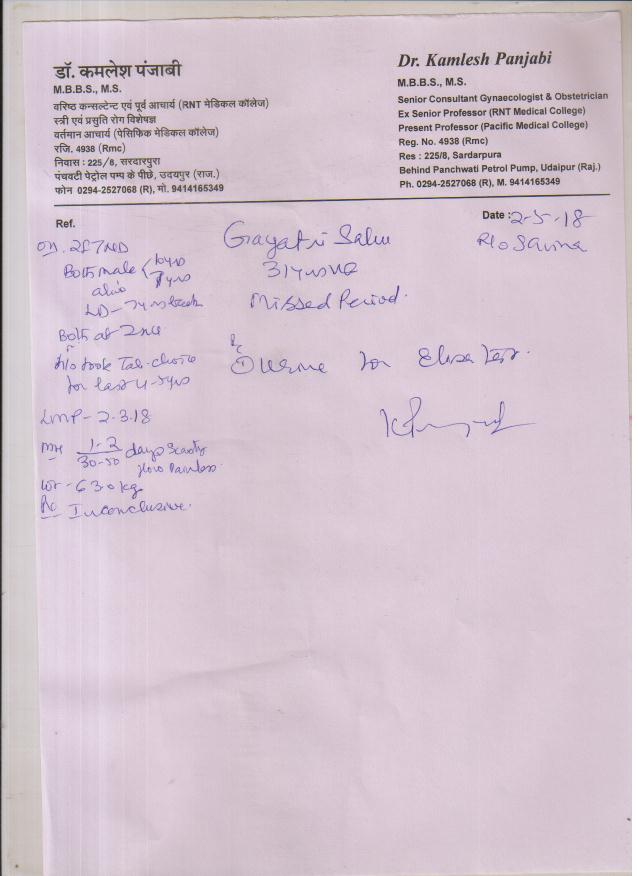 डॉ. कमलेश पंजाबी
M.B.B.S., M.S.
वरिष्ठ कन्सल्टेन्ट एवं पूर्व आचार्य (RNT मेडिकल कॉलेज)
स्त्री एवं प्रसुति रोग विशेषज्ञ
वर्तमान आचार्य (पेसिफिक मेडिकल कॉलेज)
रजि. 4938 (Rmc)
निवास : 225/8, सरदारपुरा
पंचवटी पेट्रोल पम्प के पीछे, उदयपुर (राज.)
फोन 0294-2527068 (R), मो. 9414165349
Dr. Kamlesh Panjabi
M.B.B.S., M.S.
Senior Consultant Gynaecologist & Obstetrician
Ex Senior Professor (RNT Medical College)
Present Professor (Pacific Medical College)
Reg. No. 4938 (Rmc)
Res : 225/8, Sardarpura
Behind Panchwati Petrol Pump, Udaipur (Raj.)
Ph. 0294-2527068 (R), M. 9414165349
Ref.
Date : 2-5-18
Gayatri
R/o Savina
31yrs
Missed Period.
Both male 10yrs
7yrs
alive
LD - 7yrs back
Both at
H/o took Tab. choice
for last 4-5yrs
LMP - 2.3.18
MH 1-2/30-50 days Scanty
flow Painless.
wt - 63.0 kg
Inconclusive.
Rx
① urine for Elisa Test.